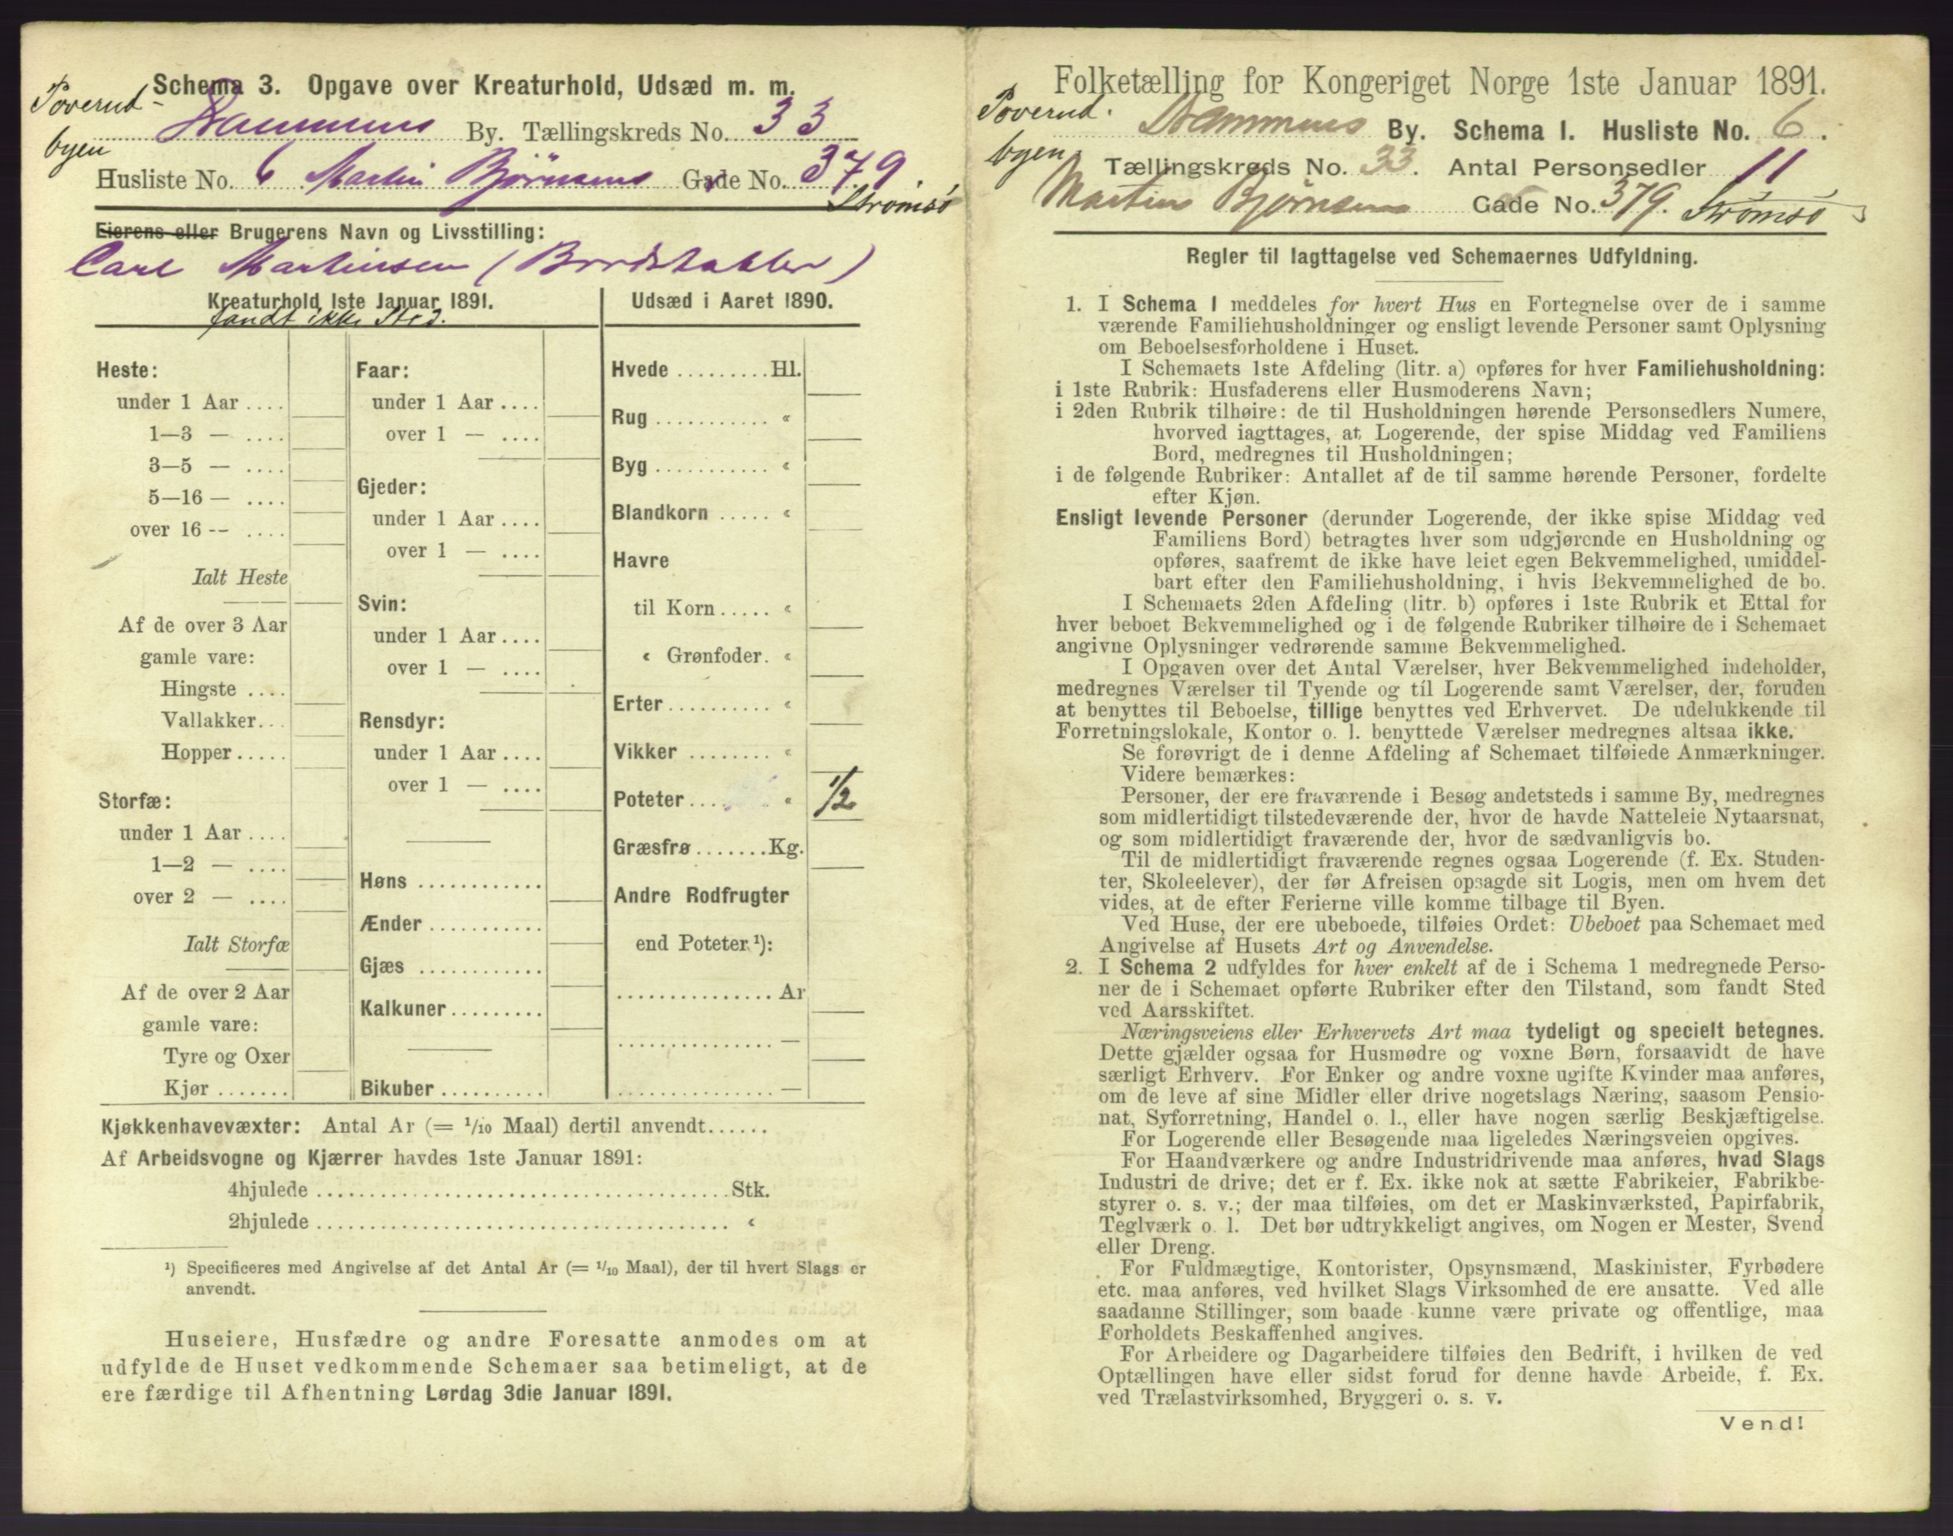 Schema 3. Opgave over Kreaturhold, Udsæd m. m.
Poverud-
byen
Drammens By. Tællingskreds No. 33
Husliste No. 6 Martin Bjørnsens Gade No. 379.
Strømsø
Eierens eller Brugerens Navn og Livsstilling:
Carl Martinsen (Bordstabler)
Kreaturhold 1ste Januar 1891.
fandt ikke Sted.
Heste:
under 1 Aar ....
1—3 — ....
3—5 — ....
5—16 — ....
over 16 -- ....
Ialt Heste
Af de over 3 Aar
gamle vare:
Hingste ....
Vallakker...
Hopper.....
Storfæ:
under 1 Aar ....
1—2 — ....
over 2 — ....
Ialt Storfæ
Af de over 2 Aar
gamle vare:
Tyre og Oxer
Kjør .......
Faar:
under 1 Aar ....
over 1 — ....
Gjeder:
under 1 Aar ....
over 1 — ....
Svin:
under 1 Aar ....
over 1 — ....
Rensdyr:
under 1 Aar ....
over 1 — ....
Høns ............
Ænder ...........
Gjæs ............
Kalkuner.........
Bikuber ..........
Udsæd i Aaret 1890.
Hvede .........Hl.
Rug ........... «
Byg ........... «
Blandkorn ..... «
Havre
til Korn ..... «
« Grønfoder. «
Erter.......... «
Vikker ........ «
Poteter.... « 1/2
Græsfrø.......Kg.
Andre Rodfrugter
end Poteter ¹):
............... Ar
............... —
............... —
Kjøkkenhavevæxter: Antal Ar (= 1/10 Maal) dertil anvendt......
Af Arbeidsvogne og Kjærrer havdes 1ste Januar 1891:
4hjulede ....................................... Stk.
2hjulede ....................................... «
¹) Specificeres med Angivelse af det Antal Ar (= 1/10 Maal), der til hvert Slags er
anvendt.
Huseiere, Husfædre og andre Foresatte anmodes om at
udfylde de Huset vedkommende Schemaer saa betimeligt, at de
ere færdige til Afhentning Lørdag 3die Januar 1891.
Folketælling for Kongeriget Norge 1ste Januar 1891.
Poverud.
byen
Drammens By. Schema I. Husliste No. 6.
Tællingskreds No. 33. Antal Personsedler 11
Martin Bjørnsens Gade No. 379. Strømsø
Regler til Iagttagelse ved Schemaernes Udfyldning.
1. I Schema I meddeles for hvert Hus en Fortegnelse over de i samme
værende Familiehusholdninger og ensligt levende Personer samt Oplysning
om Beboelsesforholdene i Huset.
I Schemaets 1ste Afdeling (litr. a) opføres for hver Familiehusholdning:
i 1ste Rubrik: Husfaderens eller Husmoderens Navn;
i 2den Rubrik tilhøire: de til Husholdningen hørende Personsedlers Numere,
hvorved iagttages, at Logerende, der spise Middag ved Familiens
Bord, medregnes til Husholdningen;
i de følgende Rubriker: Antallet af de til samme hørende Personer, fordelte
efter Kjøn.
Ensligt levende Personer (derunder Logerende, der ikke spise Middag ved
Familiens Bord) betragtes hver som udgjørende en Husholdning og
opføres, saafremt de ikke have leiet egen Bekvemmelighed, umiddel-
bart efter den Familiehusholdning, i hvis Bekvemmelighed de bo.
I Schemaets 2den Afdeling (litr. b) opføres i 1ste Rubrik et Ettal for
hver beboet Bekvemmelighed og i de følgende Rubriker tilhøire de i Schemaet
angivne Oplysninger vedrørende samme Bekvemmelighed.
I Opgaven over det Antal Værelser, hver Bekvemmelighed indeholder,
medregnes Værelser til Tyende og til Logerende samt Værelser, der, foruden
at benyttes til Beboelse, tillige benyttes ved Erhvervet. De udelukkende til
Forretningslokale, Kontor o. l. benyttede Værelser medregnes altsaa ikke.
Se forøvrigt de i denne Afdeling af Schemaet tilføiede Anmærkninger.
Videre bemærkes:
Personer, der ere fraværende i Besøg andetsteds i samme By, medregnes
som midlertidigt tilstedeværende der, hvor de havde Natteleie Nytaarsnat,
og som midlertidigt fraværende der, hvor de sædvanligvis bo.
Til de midlertidigt fraværende regnes ogsaa Logerende (f. Ex. Studen-
ter, Skoleelever), der før Afreisen opsagde sit Logis, men om hvem det
vides, at de efter Ferierne ville komme tilbage til Byen.
Ved Huse, der ere ubeboede, tilføies Ordet: Ubeboet paa Schemaet med
Angivelse af Husets Art og Anvendelse.
2. I Schema 2 udfyldes for hver enkelt af de i Schema 1 medregnede Perso-
ner de i Schemaet opførte Rubriker efter den Tilstand, som fandt Sted
ved Aarsskiftet.
Næringsveiens eller Erhvervets Art maa tydeligt og specielt betegnes.
Dette gjælder ogsaa for Husmødre og voxne Børn, forsaavidt de have
særligt Erhverv. For Enker og andre voxne ugifte Kvinder maa anføres,
om de leve af sine Midler eller drive nogetslags Næring, saasom Pensio-
nat, Syforretning, Handel o. l., eller have nogen særlig Beskjæftigelse.
For Logerende eller Besøgende maa ligeledes Næringsveien opgives.
For Haandværkere og andre Industridrivende maa anføres, hvad Slags
Industri de drive; det er f. Ex. ikke nok at sætte Fabrikeier, Fabrikbe-
styrer o. s. v.; der maa tilføies, om det er Maskinværksted, Papirfabrik,
Teglværk o. l. Det bør udtrykkeligt angives, om Nogen er Mester, Svend
eller Dreng.
For Fuldmægtige, Kontorister, Opsynsmænd, Maskinister, Fyrbødere
etc. maa anføres, ved hvilket Slags Virksomhed de ere ansatte. Ved alle
saadanne Stillinger, som baade kunne være private og offentlige, maa
Forholdets Beskaffenhed angives.
For Arbeidere og Dagarbeidere tilføies den Bedrift, i hvilken de ved
Optællingen have eller sidst forud for denne havde Arbeide, f. Ex.
ved Trælastvirksomhed, Bryggeri o. s. v.
Vend!